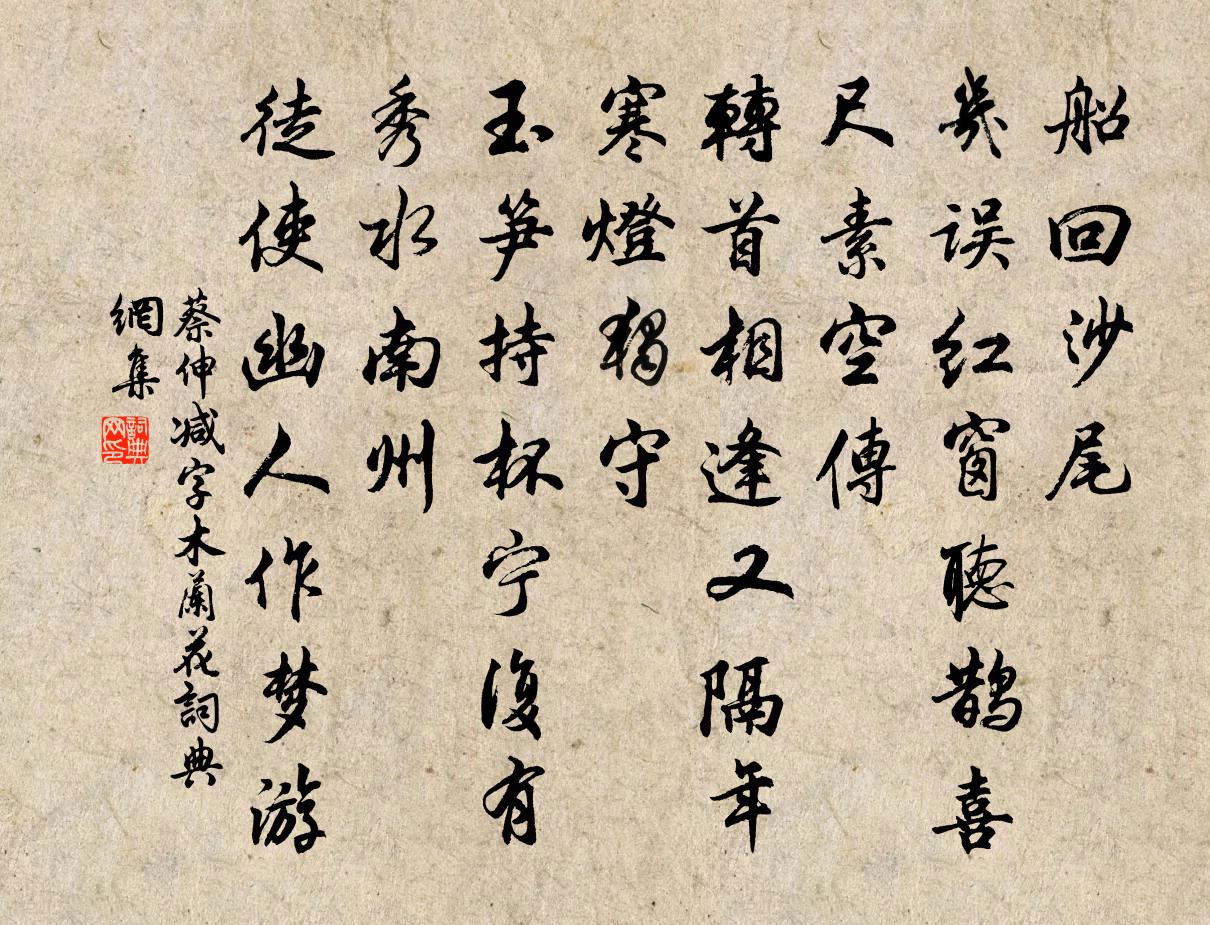 船回沙尾
幾误红窗聽鹊喜
尺素空傳
轉首相逢又隔年
寒燈獨守
玉笋持杯宁復有
秀水南州
徒使幽人作梦游
蔡伸减字木蘭花詞典
網集
詞典
网印